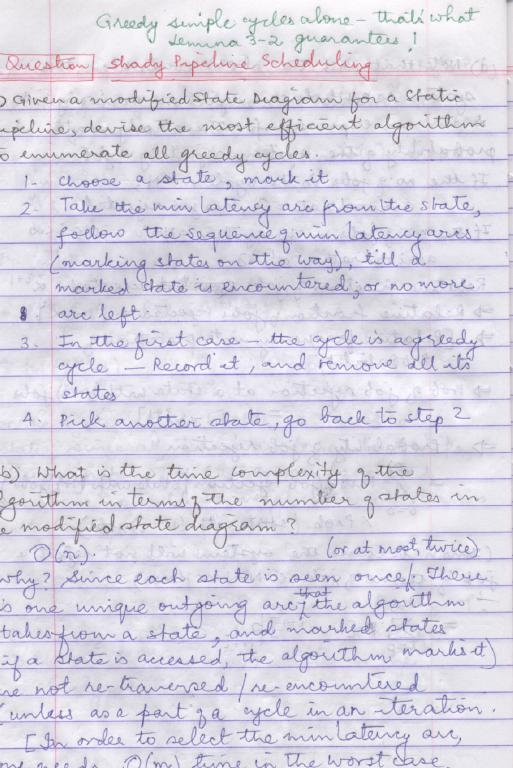 Greedy simple cycles alone - that's what
Lemma 3-2 guarantees!
Question Shady Pipeline Scheduling
) Given a modified State Diagram for a Static
ipeline, devise the most efficient algorithm
o enumerate all greedy cycles.
1- Choose a state, mark it
2. Take the min latency arc from the state,
follow the sequence of min latency arcs
(marking states on the way), till a
marked state is encountered, or no more
arc left.
3. In the first case - the cycle is a greedy
cycle - Record it, and remove all its
states
4. Pick another state, go back to step 2
b) What is the time complexity of the
lgorithm in terms of the number of states in
e modified state diagram?
O(n). (or at most, twice)
why? Since each state is seen once. There
s one unique outgoing arc that the algorithm
takes from a state, and marked states
if a state is accessed, the algorithm marks it)
re not re-traversed / re-encountered
(unless as a part of a cycle in an iteration.
[In order to select the min latency arc,
one needs O(m) time in the worst case